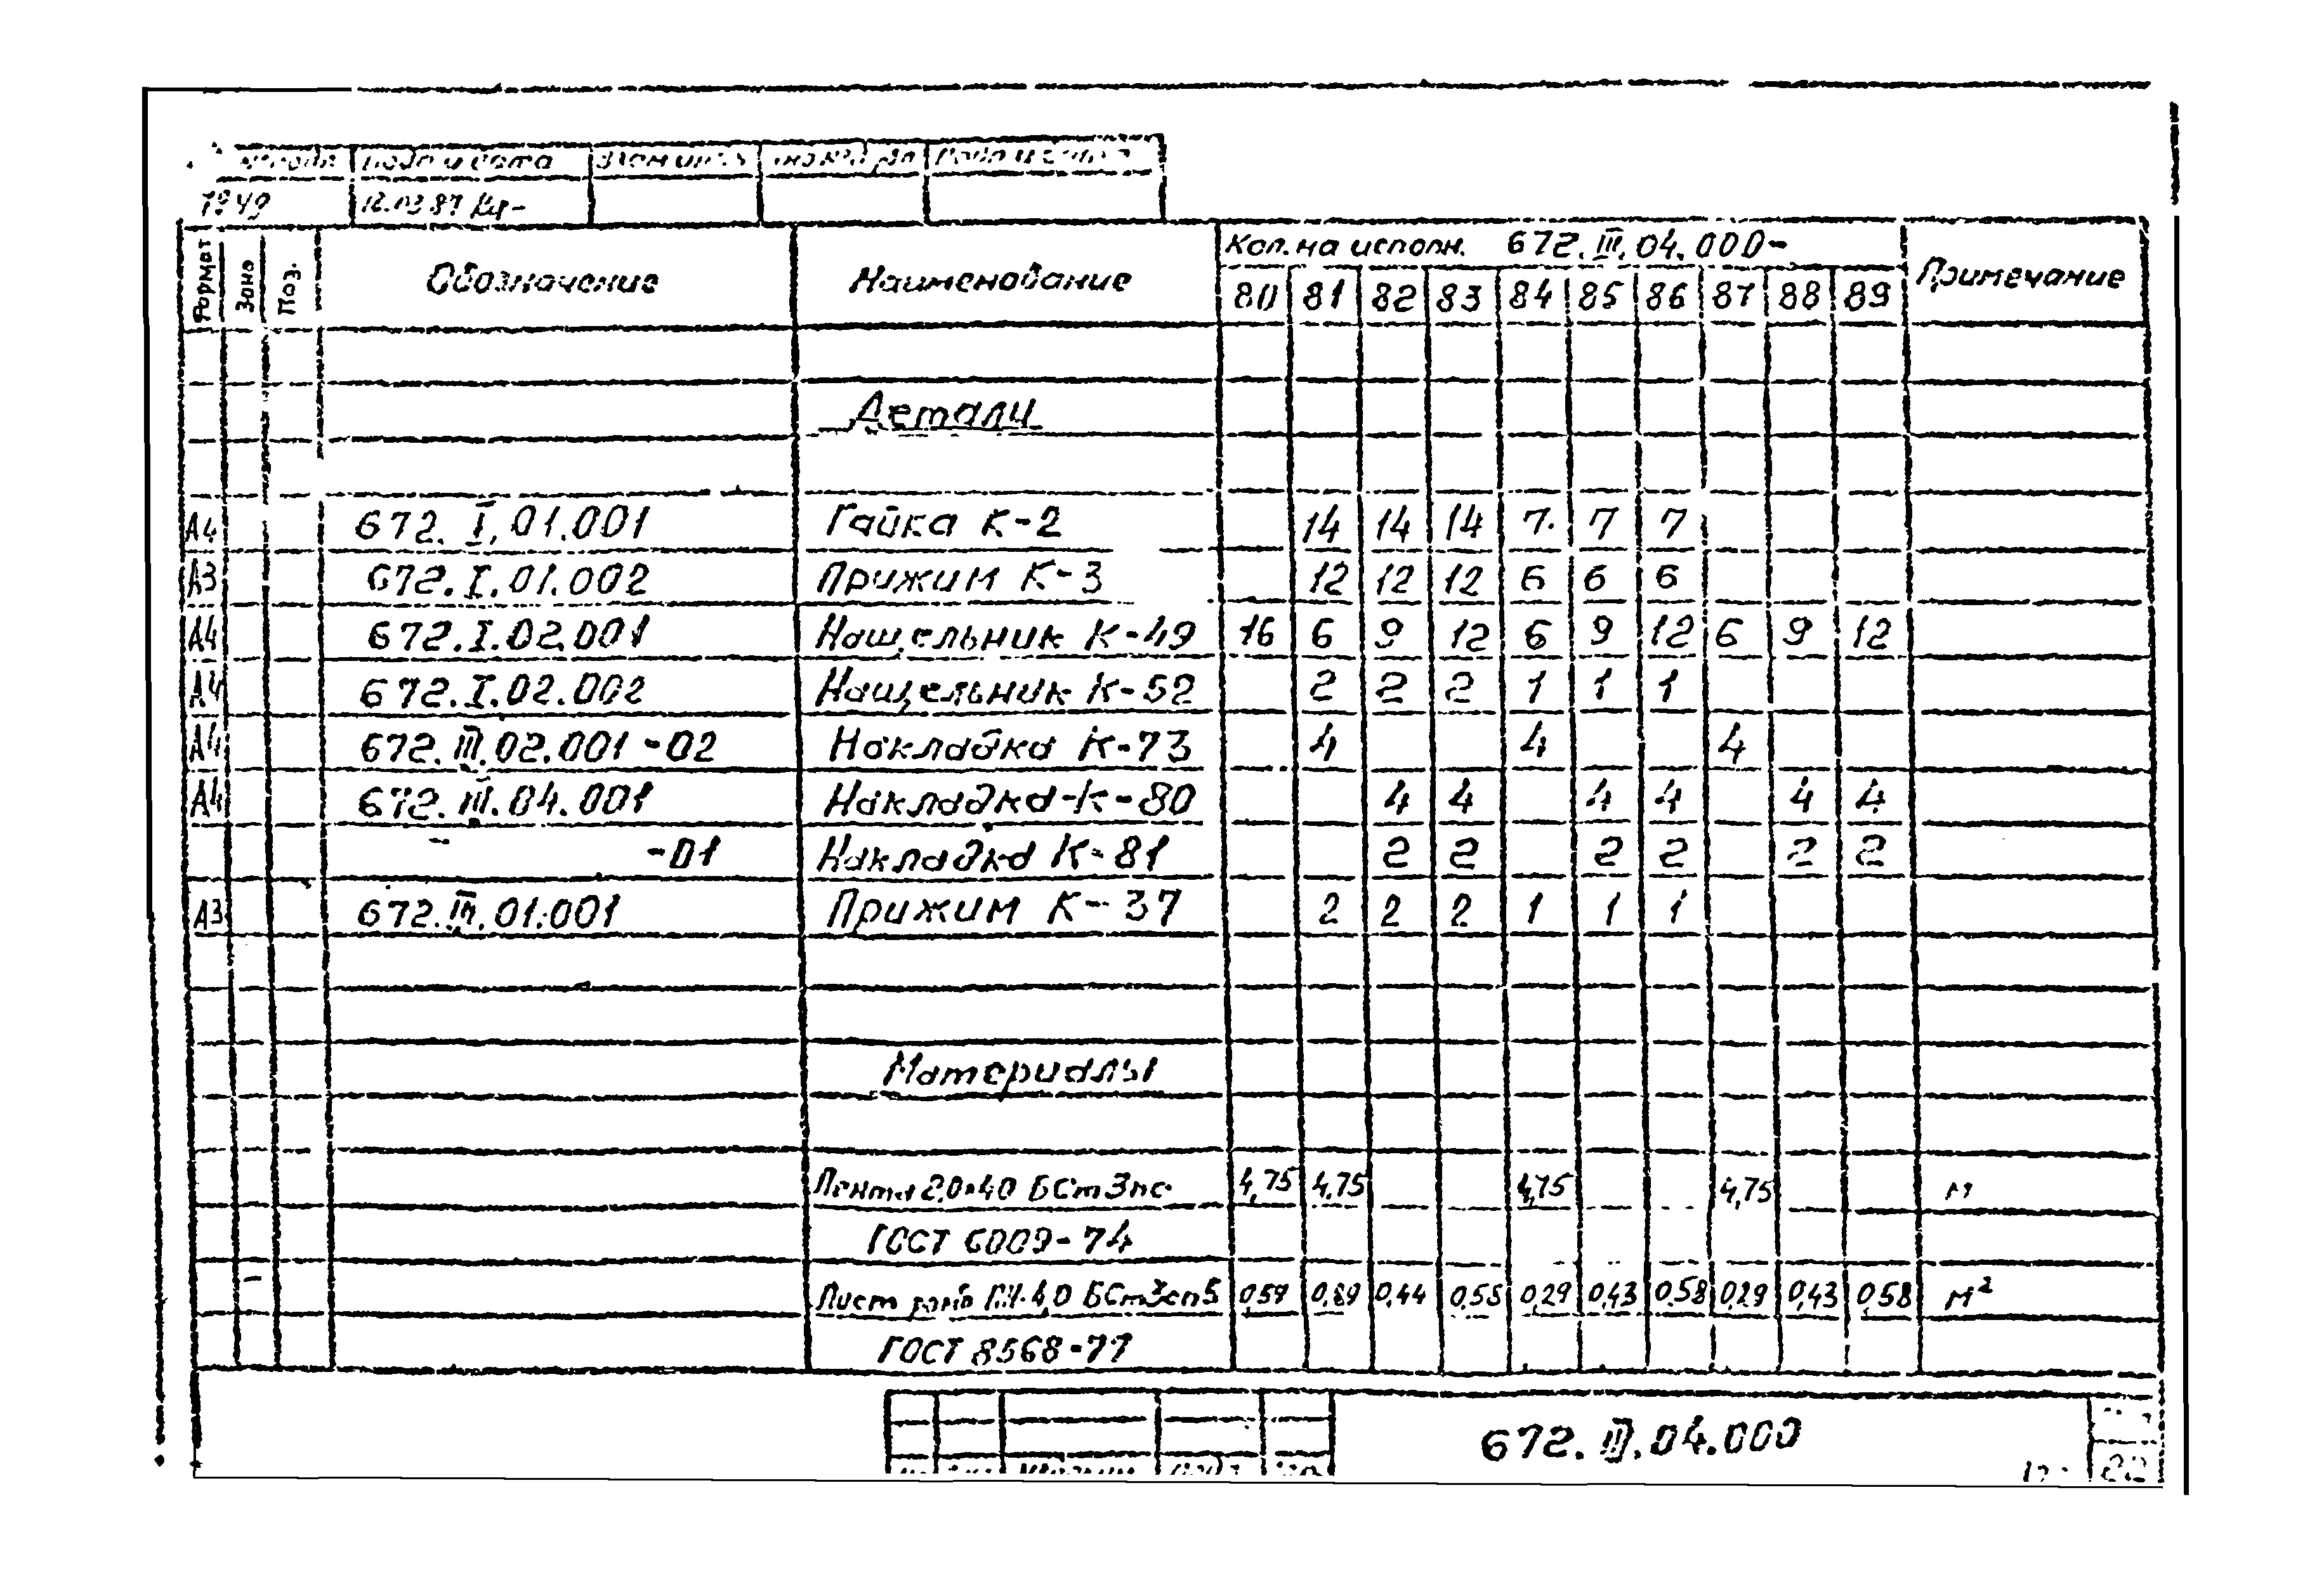 Подп и дата
7849 12.03.87
Формат Зона Поз. Обозначение Наименование Кол. на исполн. 672.III.04.000- Примечание
80 81 82 83 84 85 86 87 88 89
Детали
А4 672.I.01.001 Гайка К-2 14 14 14 7 7 7
А3 672.I.01.002 Прижим К-3 12 12 12 6 6 6
А4 672.I.02.001 Нащельник К-49 16 6 9 12 6 9 12 6 9 12
А4 672.I.02.002 Нащельник К-52 2 2 2 1 1 1
А4 672.III.02.001-02 Накладка К-73 4 4 4
А4 672.III.04.001 Накладка К-80 4 4 4 4 4 4
-01 Накладка К-81 2 2 2 2 2 2
А3 672.III.01.001 Прижим К-37 2 2 2 1 1 1
Материалы
Лента 2,0×40 БСт3пс 4,75 4,75 4,75 4,75 м
ГОСТ 6009-74
Лист ромб 4,0 БСт3сп5 0,59 0,89 0,44 0,58 0,29 0,43 0,58 0,29 0,43 0,58 м²
ГОСТ 8568-77
672.III.04.000
22